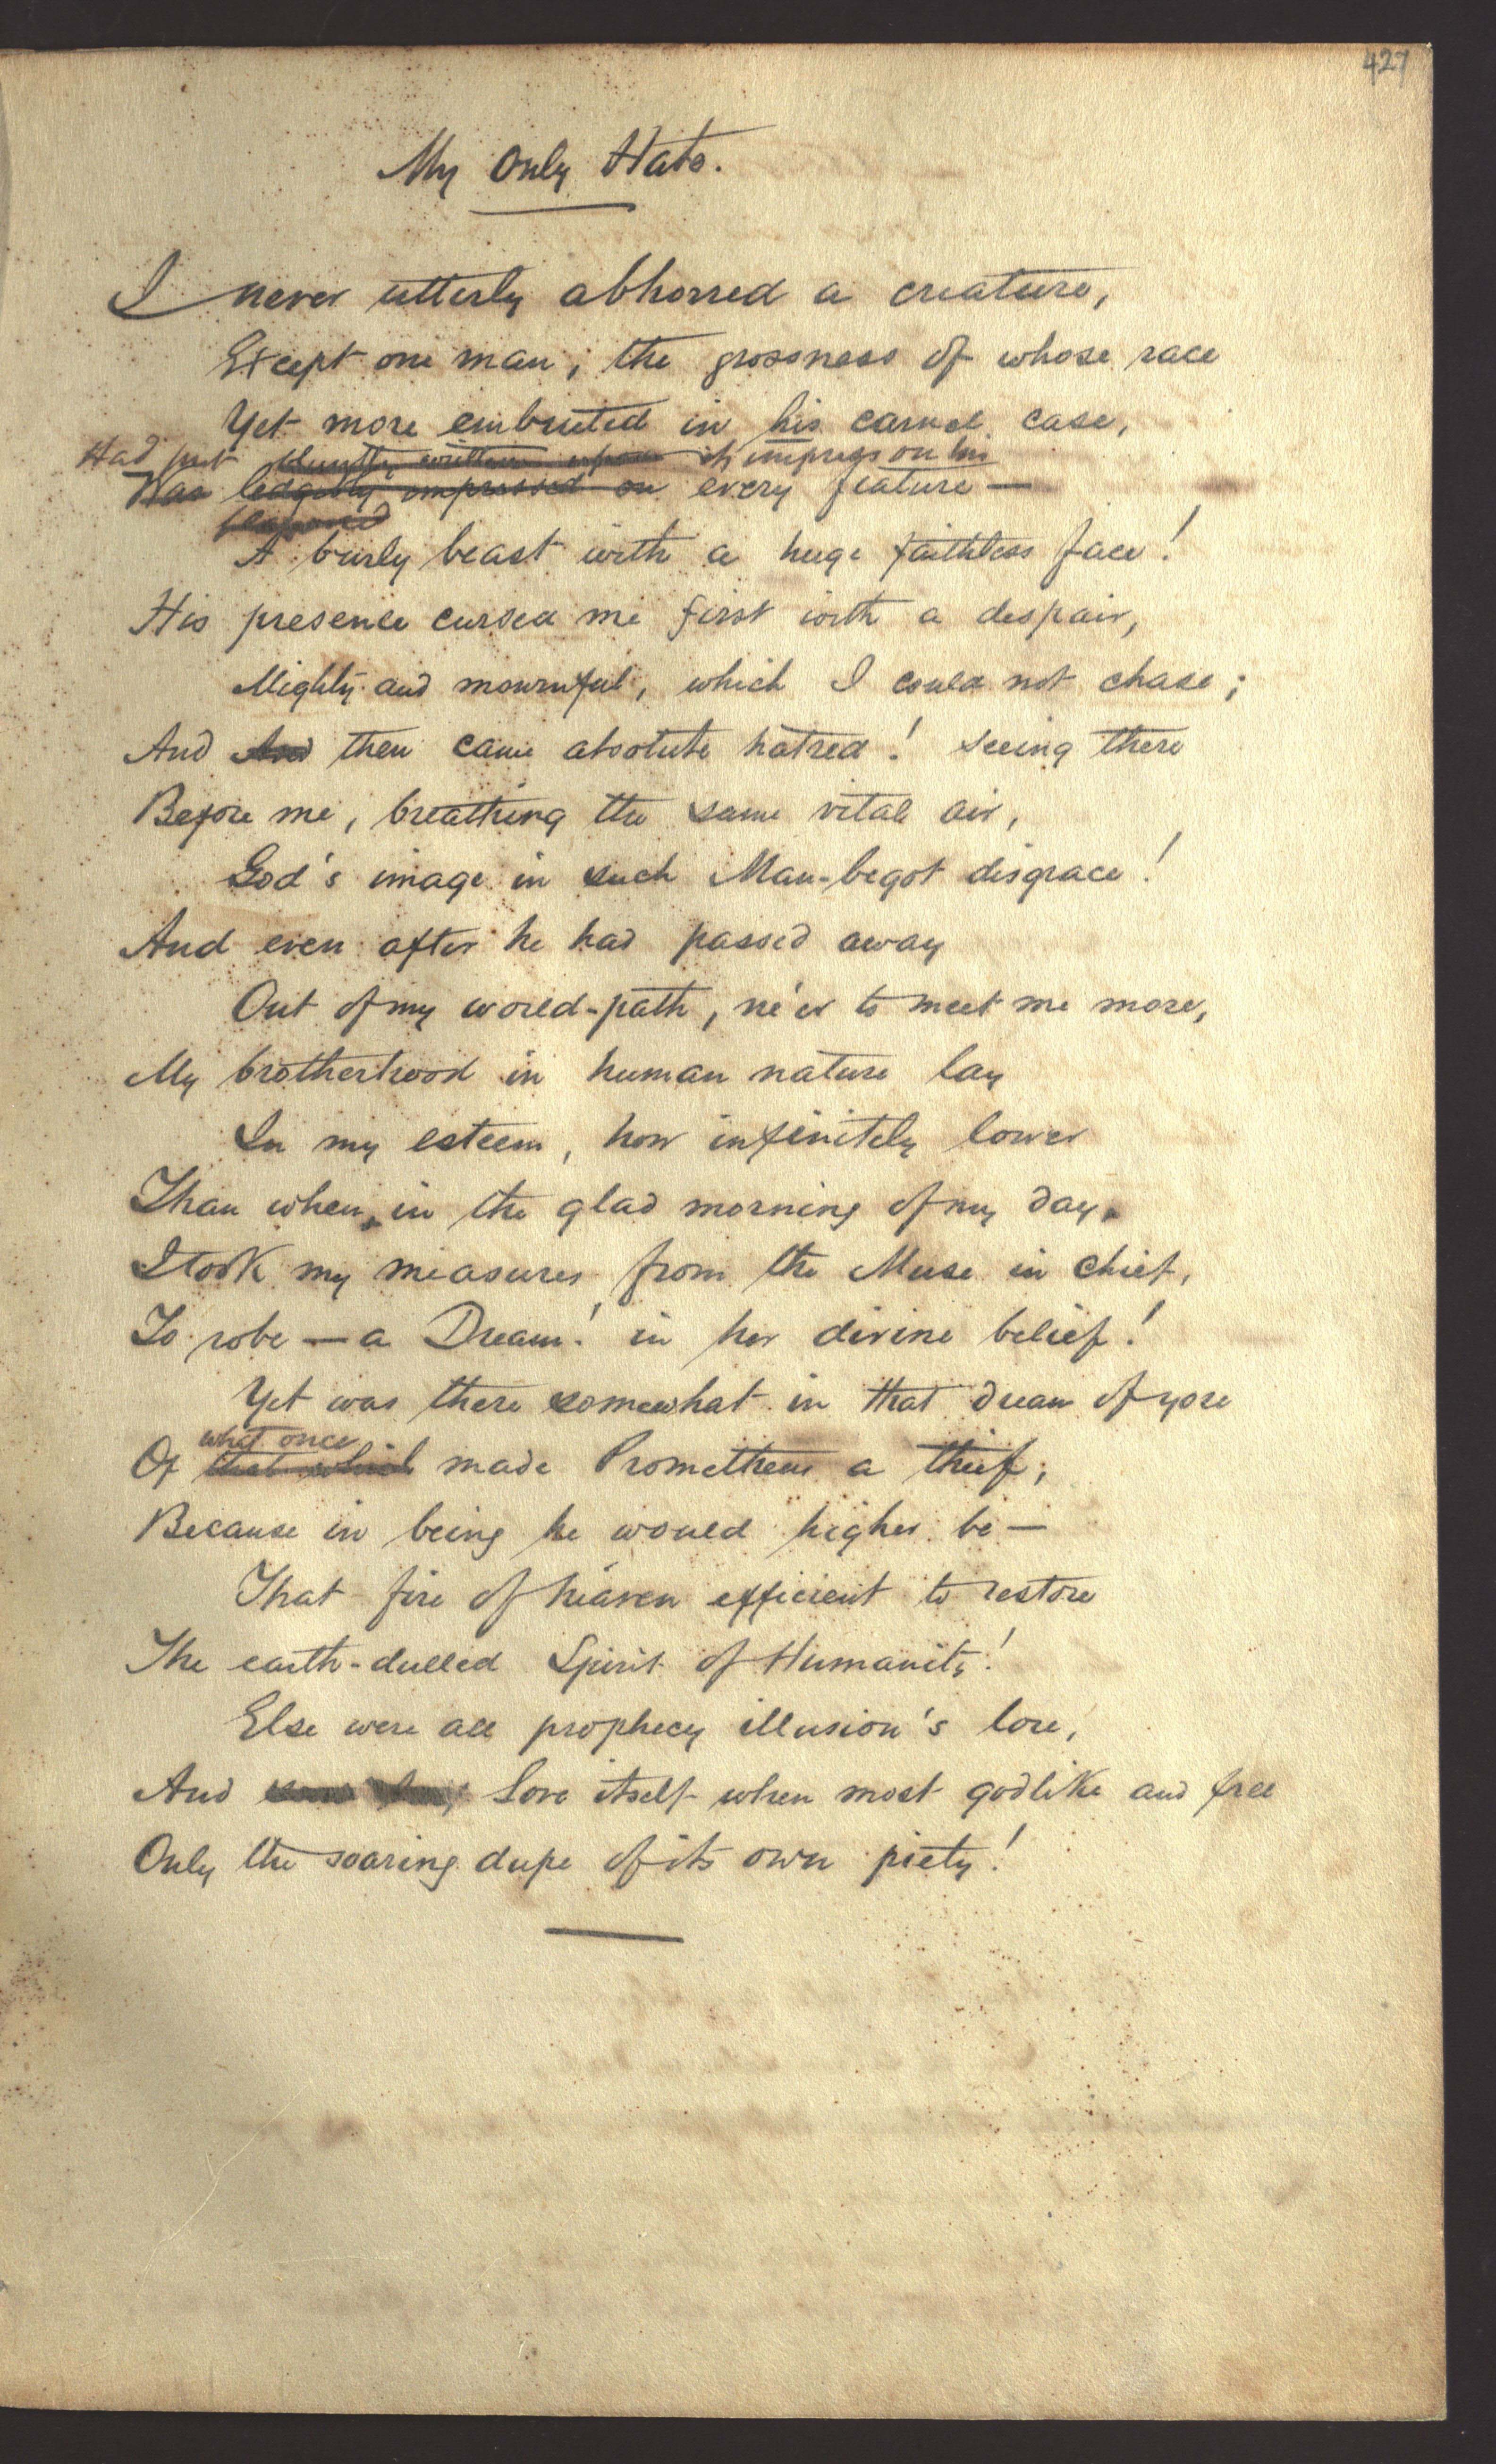 427
My Only Hate.
I never utterly abhorred a creature,
Except one man; the grossness of whose race
Yet more embruted in his carnal case,
Had put bluntly written upon its impress on his
Was ledgibly impressed on every feature —
A burly beast with a huge faithless face!
His presence cursed me first with a despair,
Mighty and mournful, which I could not chase;
And And then came absolute hatred! seeing there
Before me, breathing the same vital air,
God's image in such Man-begot disgrace!
And even after he had passed away
Out of my world-path, ne'er to meet me more,
My brotherhood in human nature lay
In my esteem, how infinitely lower
Than when, in the glad morning of my day,
I took my measures from the Muse in chief,
To robe — a Dream! in her divine belief!
Yet was there somewhat in that dream of yore
what once
Of that which made Prometheus a thief;
Because in being he would higher be —
That fire of heaven efficient to restore
The earth-dulled Spirit of Humanity!
Else were all prophecy illusion's lore,
And Love itself when most godlike and free
Only the soaring dupe of its own piety!